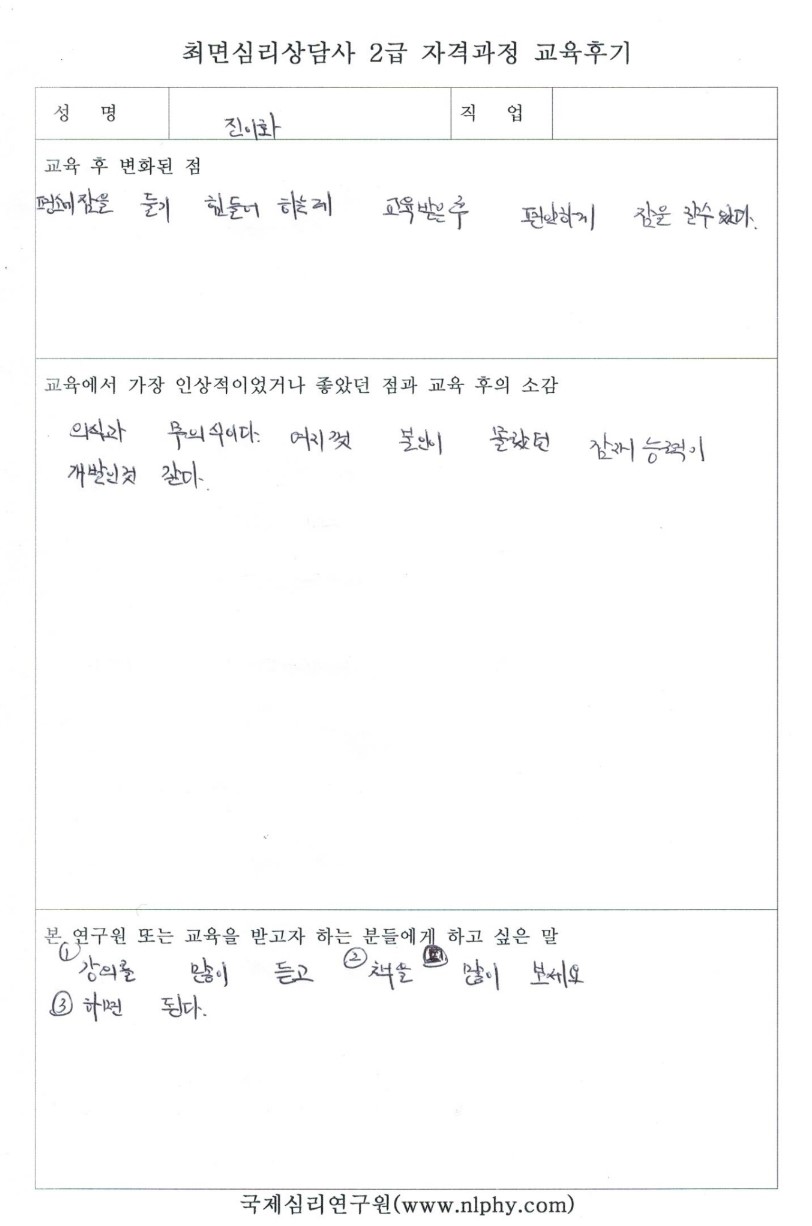 최면심리상담사 2급 자격과정 교육후기
성 명 진이화 직 업
교육 후 변화된 점
평소에 잠을 들기 힘들어 하는데 교육받은후 편안하게 잠을 잘수 있다.
교육에서 가장 인상적이었거나 좋았던 점과 교육 후의 소감
의식과 무의식이다. 여지껏 본인이 몰랐던 잠재능력이
개발된것 같다.
본 연구원 또는 교육을 받고자 하는 분들에게 하고 싶은 말
① 강의를 많이 듣고 ② 책을 많이 보세요
③ 하면 된다.
국제심리연구원(www.nlphy.com)